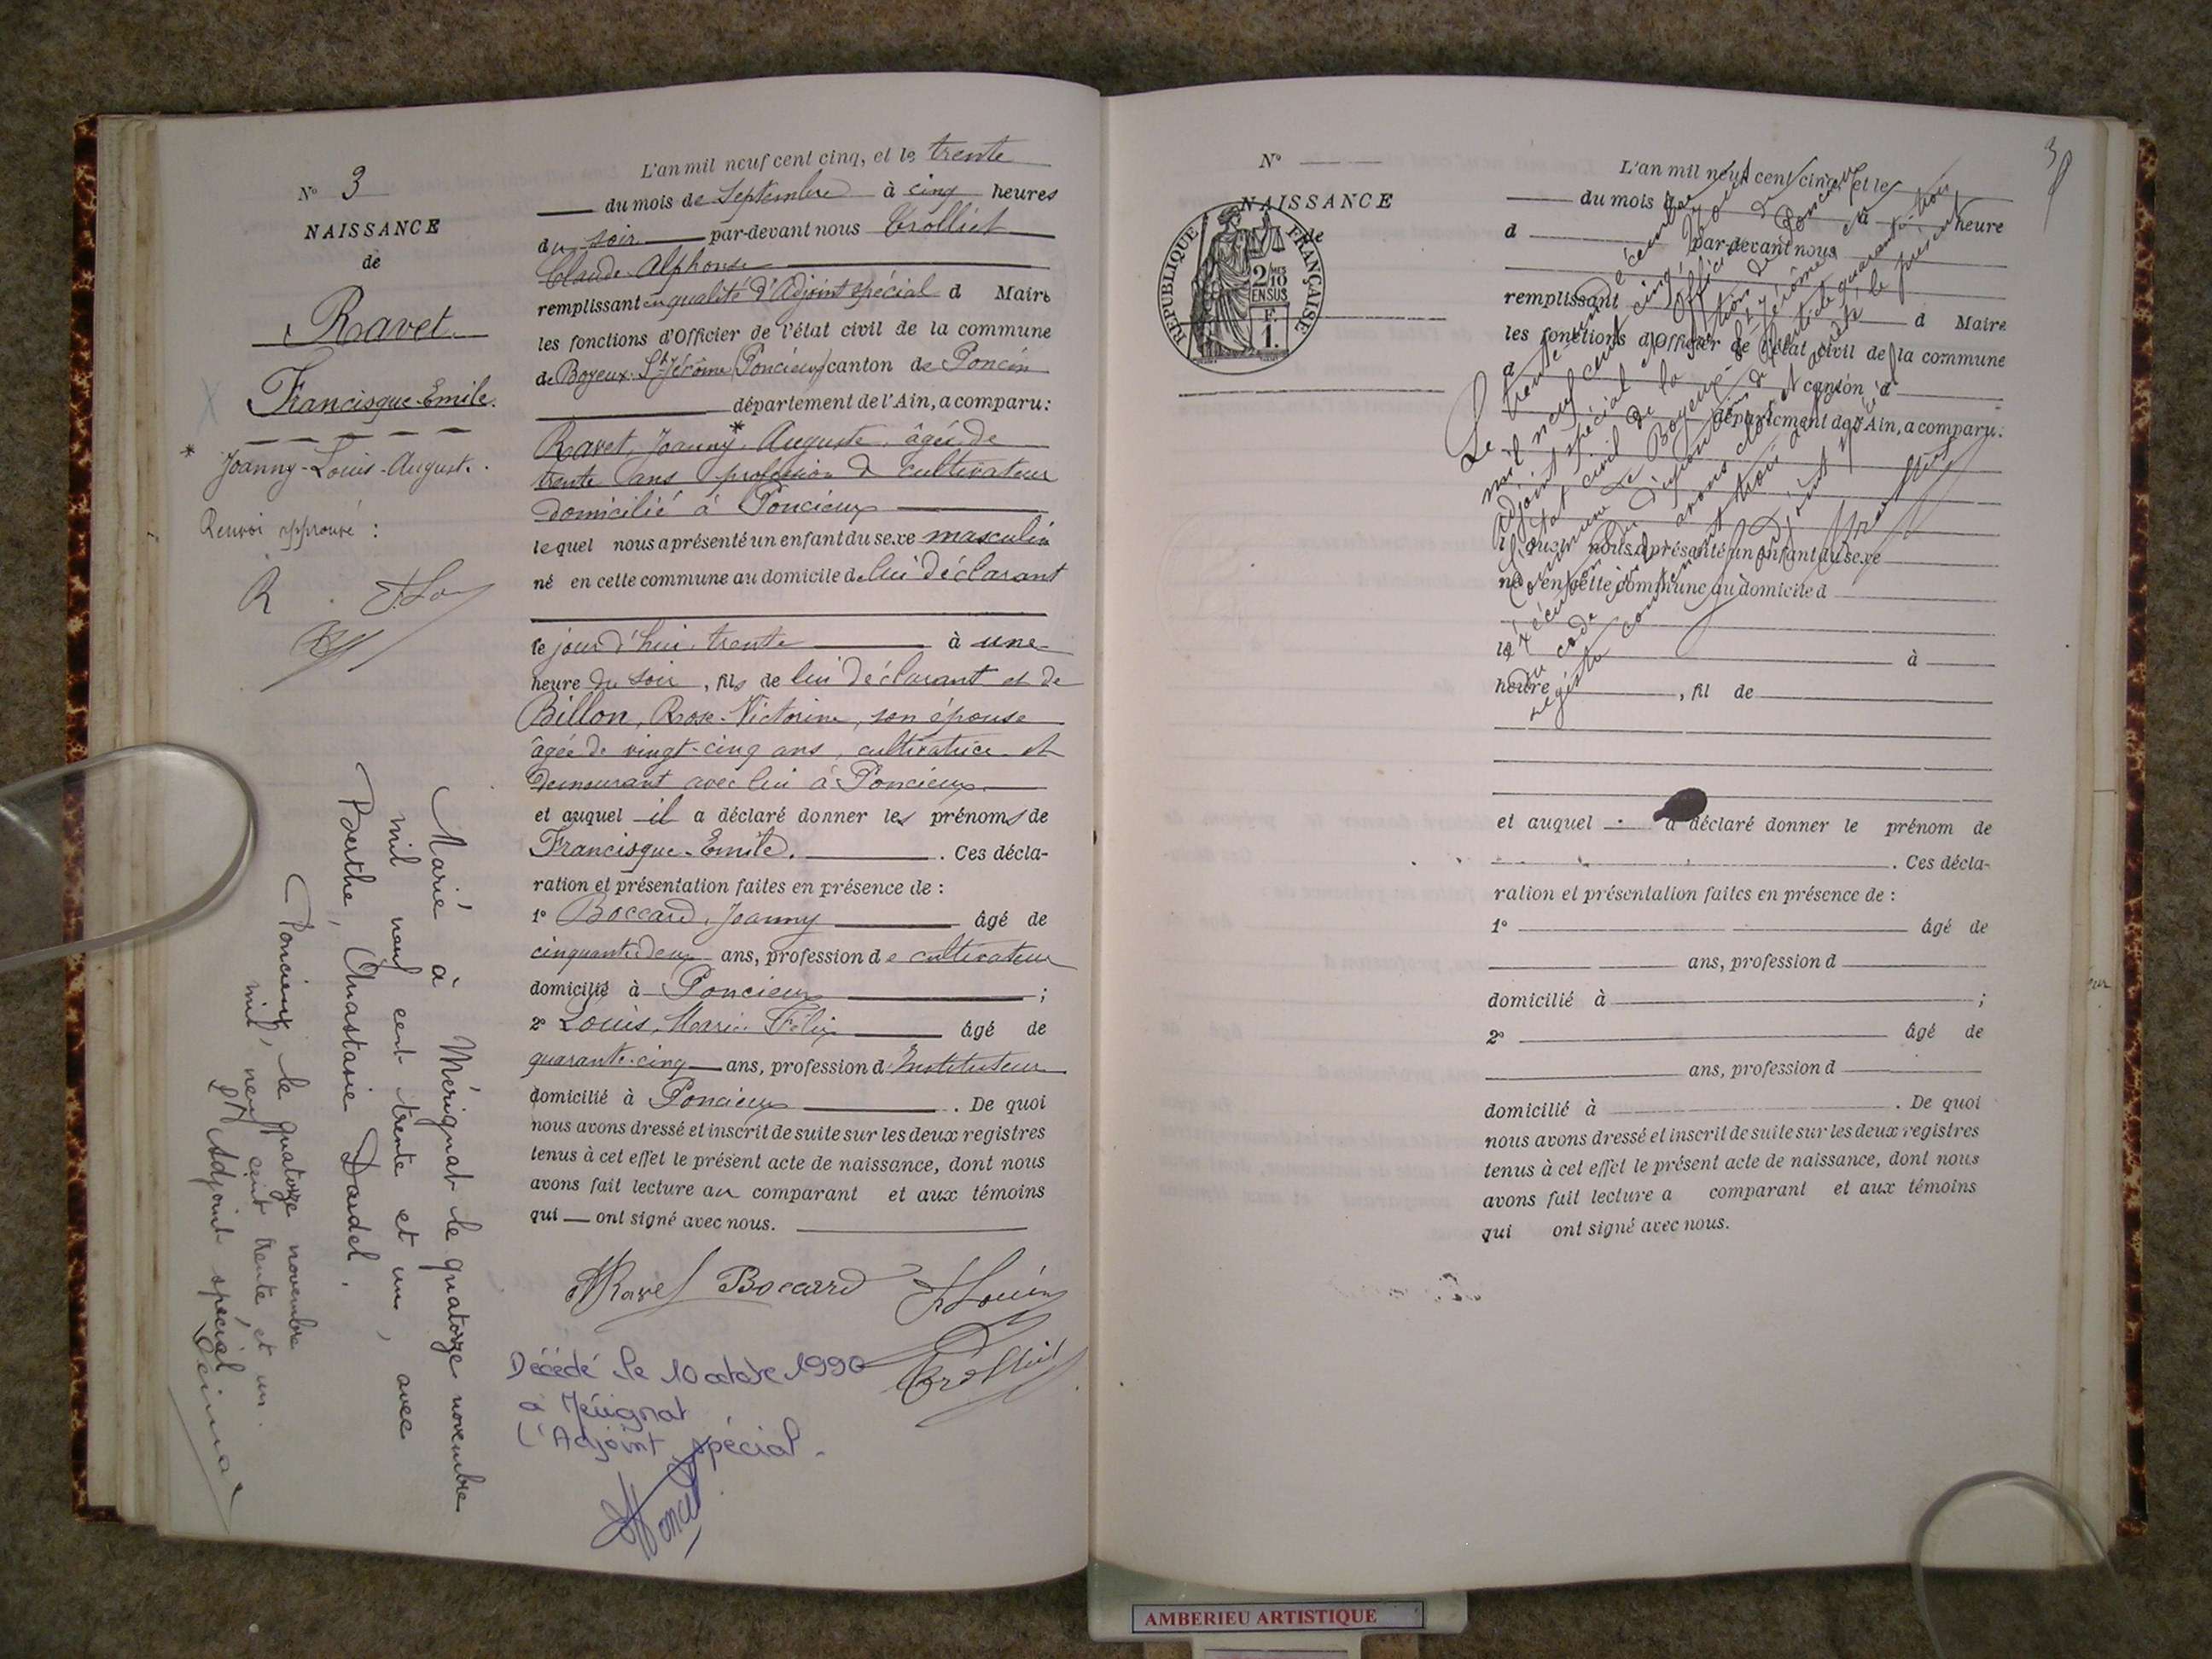 N° 3
NAISSANCE
de
Ravet
Francisque-Emile.
* Joanny-Louis-Auguste.
Renvoi approuvé :
L'an mil neuf cent cinq, et le trente
du mois de Septembre à cinq heures
du soir par-devant nous Trolliet
Claude-Alphonse
remplissant en qualité d'Adjoint spécial d Maire
les fonctions d'Officier de l'état civil de la commune
de Boyeux-St-Jérôme (Poncieux) canton de Poncin
département de l'Ain, a comparu :
Ravet, Joanny* Auguste, âgé de
trente ans profession de cultivateur
domicilié à Poncieux
lequel nous a présenté un enfant du sexe masculin
né en cette commune au domicile de lui déclarant
le jour d'hui, trente à une
heure du soir, fils de lui déclarant et de
Billon, Rose-Victorine, son épouse
âgée de vingt-cinq ans, cultivatrice et
demeurant avec lui à Poncieux.
et auquel il a déclaré donner les prénoms de
Francisque-Emile. Ces décla-
ration et présentation faites en présence de :
1° Boccard, Joanny âgé de
cinquante-deux ans, profession de cultivateur
domicilié à Poncieux ;
2° Louis, Marie Félix âgé de
quarante-cinq ans, profession d'Instituteur
domicilié à Poncieux. De quoi
nous avons dressé et inscrit de suite sur les deux registres
tenus à cet effet le présent acte de naissance, dont nous
avons fait lecture au comparant et aux témoins
qui — ont signé avec nous.
Ravet Boccard Louis
Trolliet
Décédé le 10 octobre 1990
à Mérignat
L'Adjoint spécial.
Marié à Mérignat le quatorze novembre
mil neuf cent trente et un, avec
Berthe, Anastasie Dardel.
Poncieux, le quatorze novembre
mil neuf cent trente et un.
L'Adjoint spécial
3
N°
NAISSANCE
de
REPUBLIQUE FRANÇAISE
2/10 MES
EN SUS
F.
1.
L'an mil neuf cent cinq, et le
du mois d à heure
d par-devant nous
remplissant d Maire
les fonctions d'Officier de l'état civil de la commune
d canton d
département de l'Ain, a comparu :
lequel nous a présenté un enfant du sexe
né en cette commune au domicile d
le à
heure , fil de
et auquel a déclaré donner le prénom de
. Ces décla-
ration et présentation faites en présence de :
1° âgé de
ans, profession d
domicilié à ;
2° âgé de
ans, profession d
domicilié à . De quoi
nous avons dressé et inscrit de suite sur les deux registres
tenus à cet effet le présent acte de naissance, dont nous
avons fait lecture a comparant et aux témoins
qui ont signé avec nous.
Le trente un décembre
mil neuf cent cinq, Nous
Adjoint spécial et Officier de
l'état civil de la section de Poncieux
Commune de Boyeux-St-Jérôme, en
exécution des dispositions de l'article quarante-trois
du code civil avons clos et arrêté le présent
registre contenant trois
AMBERIEU ARTISTIQUE